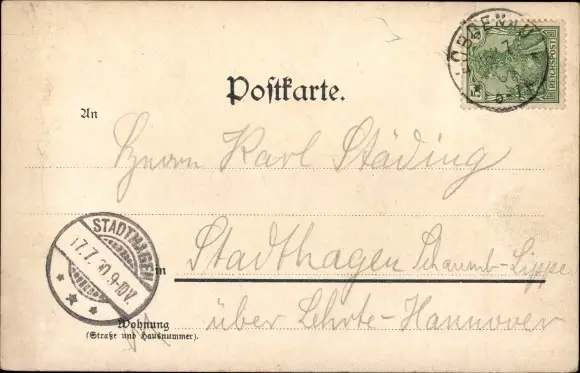 Postkarte.
5
REICHSPOST
An
Herrn Karl Städing
STADTHAGEN
17.7.00.9-10V.
in Stadthagen Schaumb-Lippe
über Lehrte-Hannover
Wohnung
(Straße und Hausnummer).